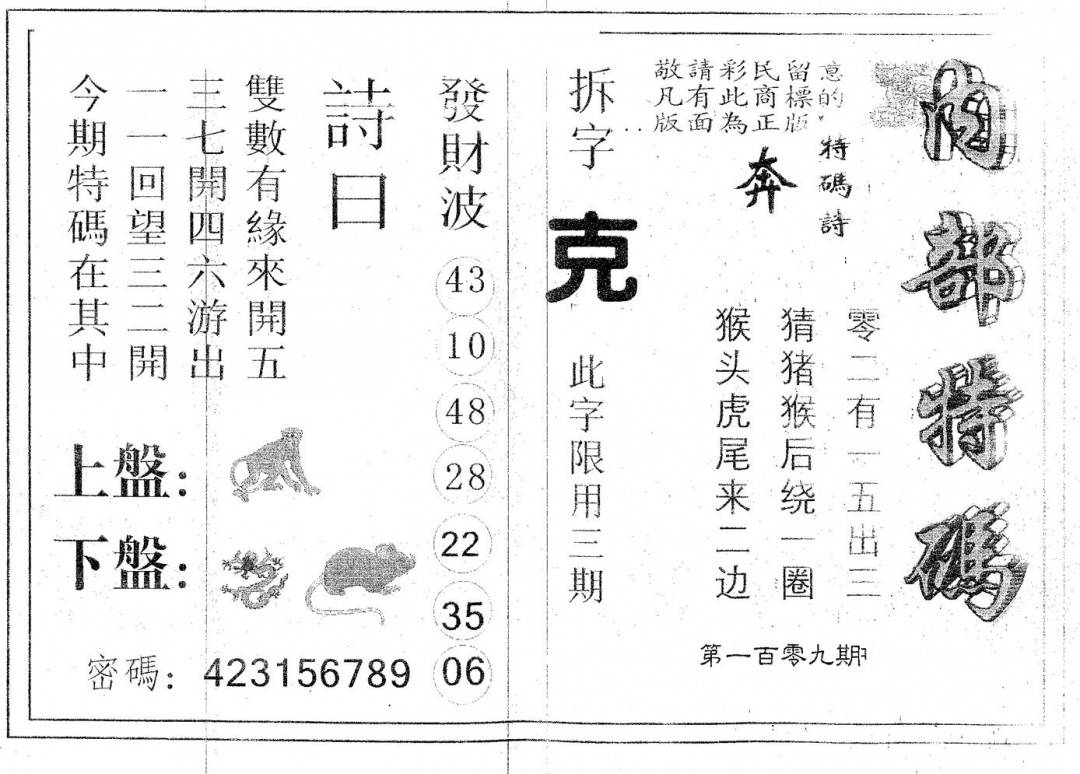 内部特碼
敬請彩民留意
凡有此商標的
版面為正版
特碼詩
奔
零二有一五出三
猜猪猴后绕一圈
猴头虎尾来二边
第一百零九期
拆字
克
此字限用三期
發財波
43
10
48
28
22
35
06
詩曰
雙數有緣來開五
三七開四六游出
一一回望三二開
今期特碼在其中
上盤：
下盤：
密碼：423156789